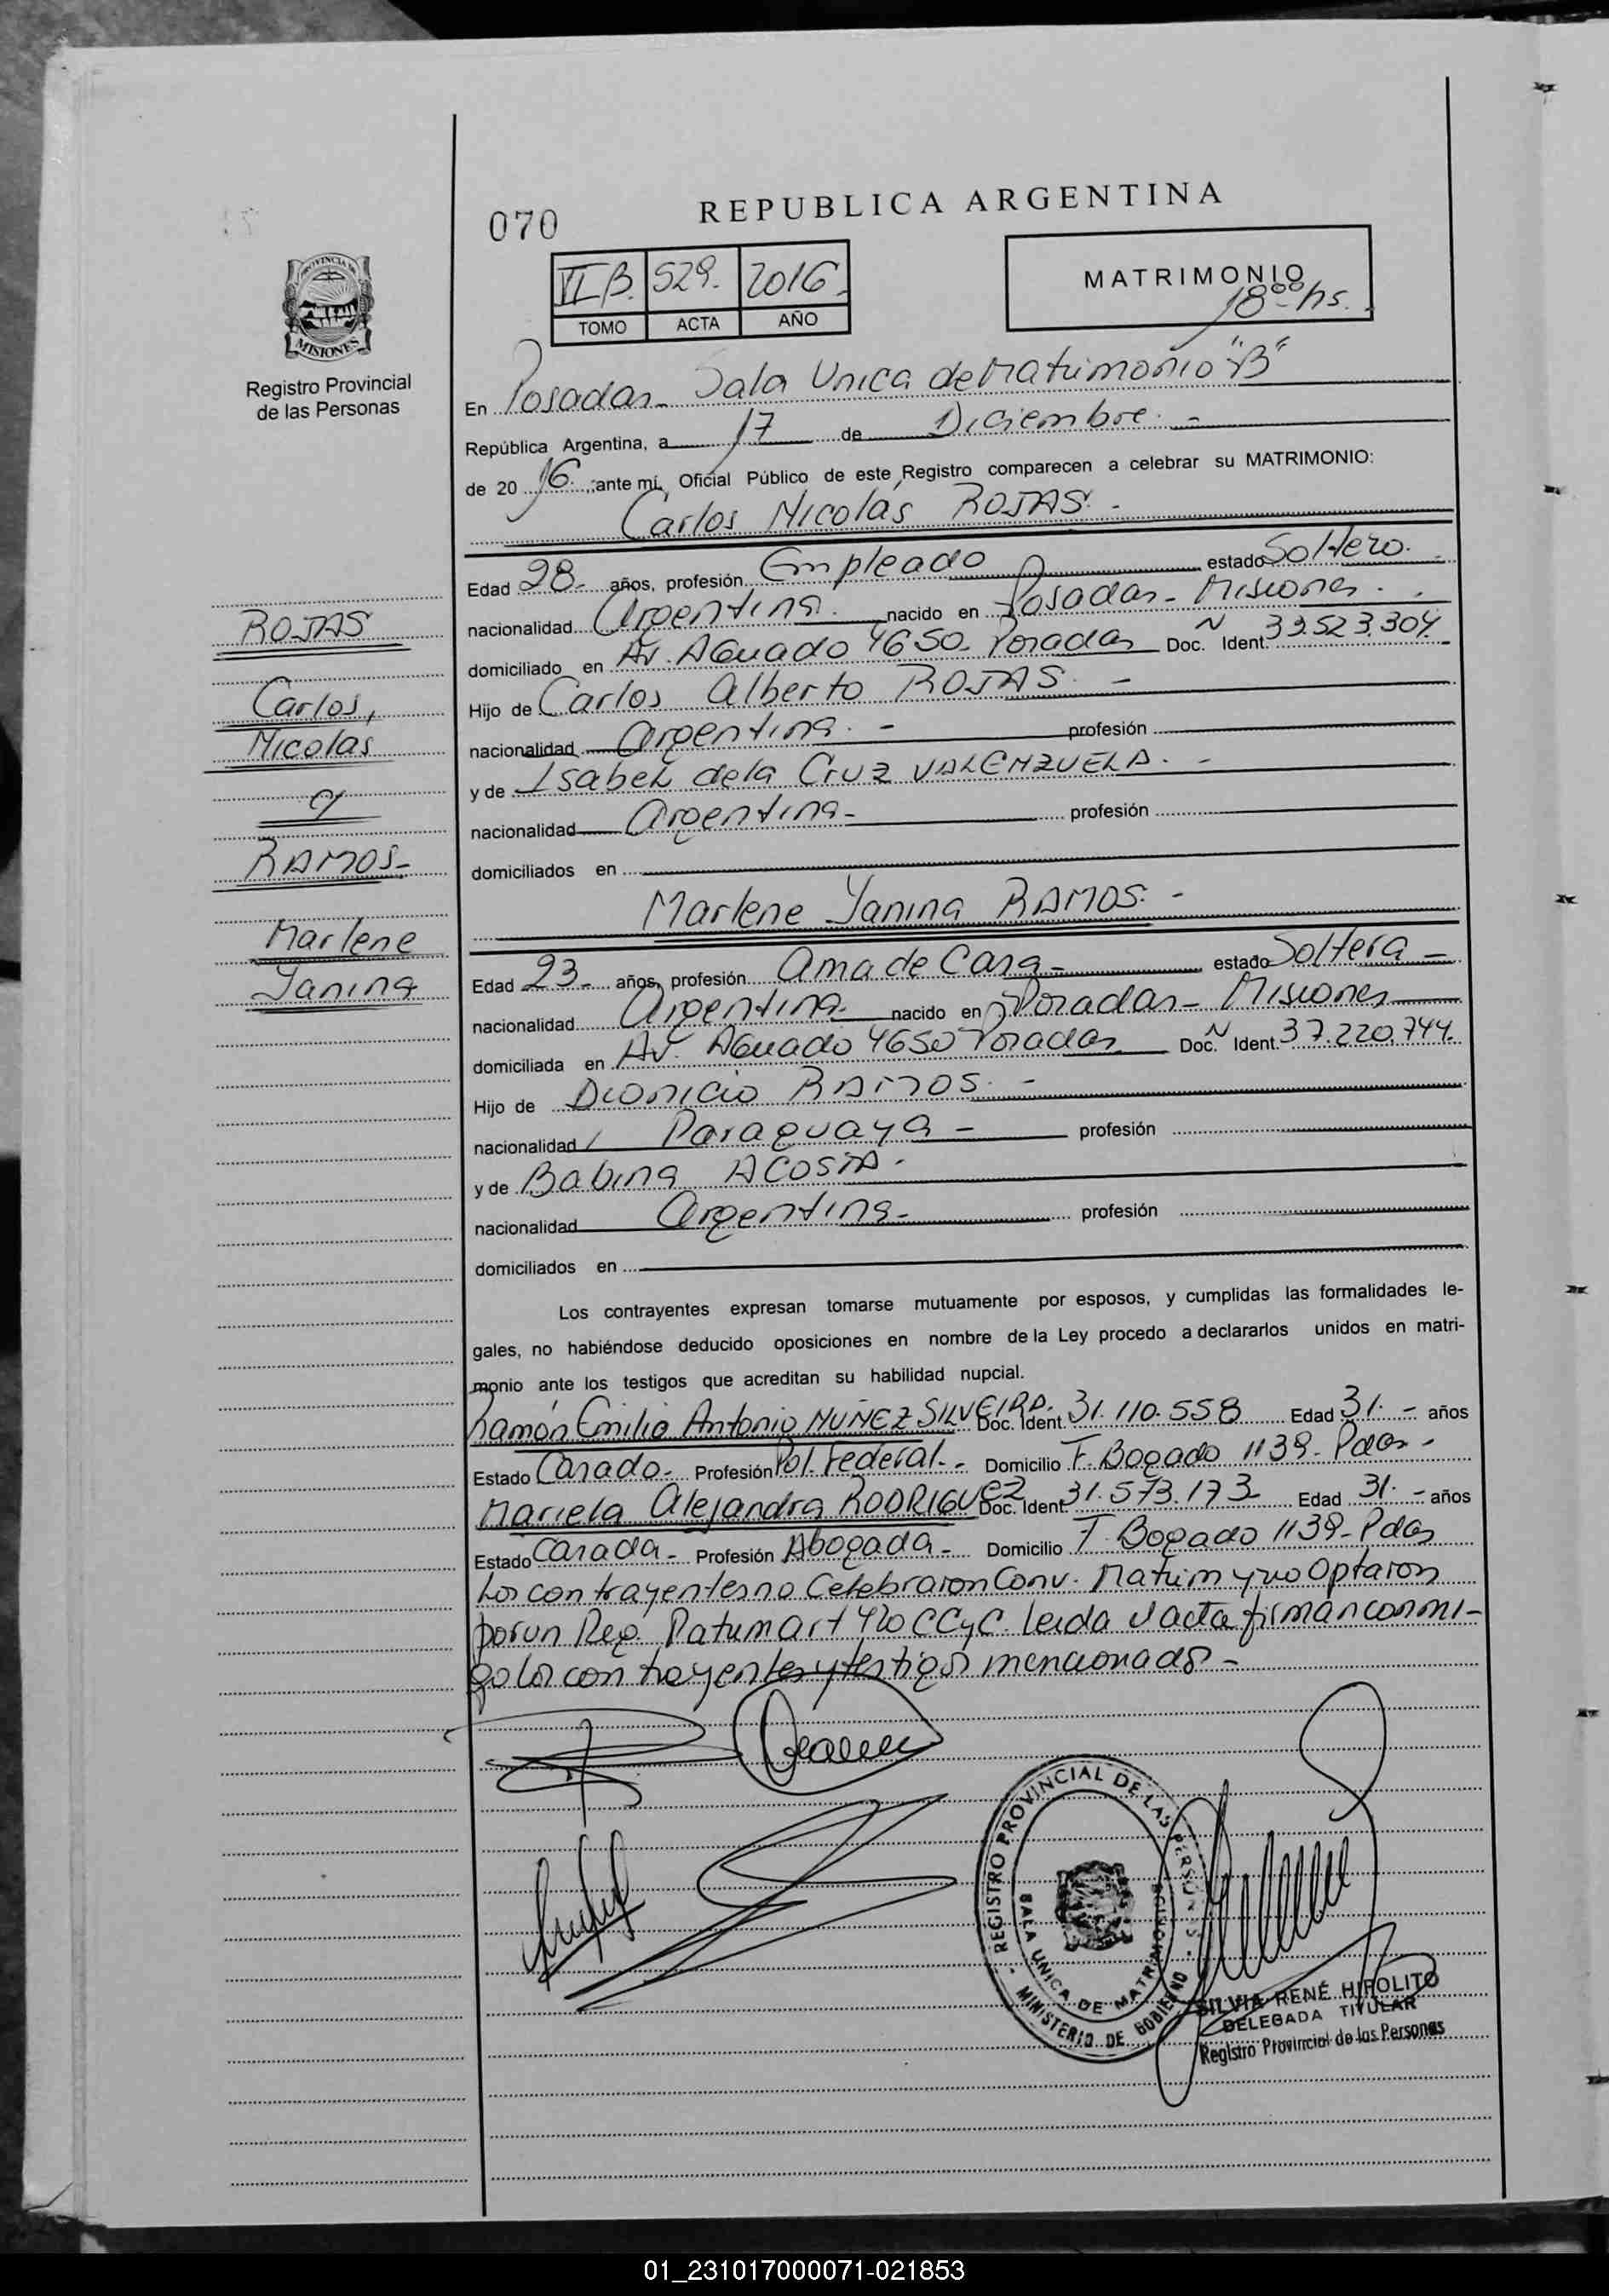 REPUBLICA ARGENTINA
070
VI B. 529. 2016
TOMO ACTA AÑO
MATRIMONIO
18 00 hs.
PROVINCIA DE
MISIONES
Registro Provincial
de las Personas
En Posadas - Sala Unica de Matrimonio "B"
República Argentina, a 17 de Diciembre. -
de 20 16. ante mí, Oficial Público de este Registro comparecen a celebrar su MATRIMONIO:
Carlos Nicolás ROJAS. -
Edad 28- años, profesión Empleado estado Soltero.
nacionalidad Argentina. nacido en Posadas - Misiones.
domiciliado en Av. Aguado 4650- Posadas Doc. Ident. 33.523.304.
Hijo de Carlos Alberto ROJAS. -
nacionalidad Argentina. - profesión
y de Isabel de la Cruz VALENZUELA. -
nacionalidad Argentina- profesión
domiciliados en
Marlene Yanina RAMOS. -
Edad 23- años, profesión Ama de Casa- estado Soltera -
nacionalidad Argentina- nacido en Posadas - Misiones
domiciliada en Av. Aguado 4650 Posadas Doc. Ident. 37.220.744.
Hijo de Dionicio RAMOS. -
nacionalidad Paraguaya - profesión
y de Babina ACOSTA. -
nacionalidad Argentina- profesión
domiciliados en
ROJAS
Carlos,
Nicolas
c/
RAMOS-
Marlene
Yanina
Los contrayentes expresan tomarse mutuamente por esposos, y cumplidas las formalidades le-
gales, no habiéndose deducido oposiciones en nombre de la Ley procedo a declararlos unidos en matri-
monio ante los testigos que acreditan su habilidad nupcial.
Ramón Emilio Antonio NUÑEZ SILVEIRA. Doc. Ident. 31.110.558 Edad 31. - años
Estado Casado- Profesión Pol. Federal- Domicilio F. Bogado 1139- Pdas -
Mariela Alejandra RODRIGUEZ Doc. Ident. 31.573.173- Edad 31. - años
Estado Casada- Profesión Abogada- Domicilio F. Bogado 1139- Pdas
Los contrayentes no Celebraron Conv. Matrim y no Optaron
por un Reg. Patrim art 420 CCyC. Leida el acta firman conmi-
go los contrayentes y testigos mencionados -
REGISTRO PROVINCIAL DE LAS PERSONAS
SALA UNICA DE MATRIMONIOS
MINISTERIO DE GOBIERNO
SILVIA RENÉ HIPOLITO
DELEGADA TITULAR
Registro Provincial de las Personas
01_231017000071-021853